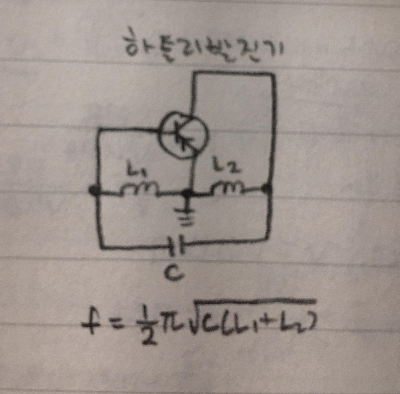 하틀리발진기
L₁
L₂
C
f = 1/2 π√C(L₁+L₂)